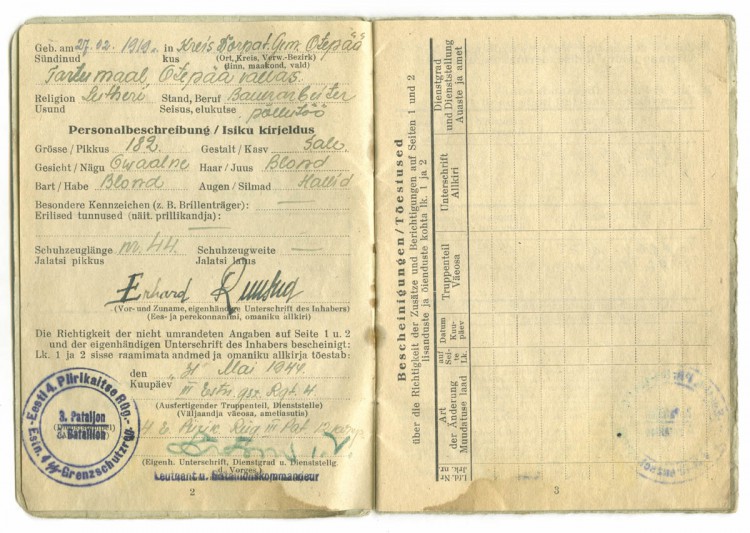 Geb. am 27.02.1919. in Kreis Dorpat. Gem. Otepää
Sündinud kus (Ort, Kreis, Verw.-Bezirk)
(linn, maakond, vald)
Tartumaal, Otepää vallas.
Religion Lutheri Stand, Beruf Bauerarbeiter
Usund Seisus, elukutse põllutöö
Personalbeschreibung / Isiku kirjeldus
Grösse / Pikkus 182. Gestalt / Kasv Sale.
Gesicht / Nägu Ovaalne Haar / Juus Blond
Bart / Habe Blond Augen / Silmad Hallid
Besondere Kennzeichen (z. B. Brillenträger): —
Erilised tunnused (näit. prillikandja):
—
Schuhzeuglänge nr. 44. Schuhzeugweite —
Jalatsi pikkus Jalatsi laius
Erhard
(Vor- und Zuname, eigenhändige Unterschrift des Inhabers)
(Ees- ja perekonnanimi, omaniku allkiri)
Die Richtigkeit der nicht umrandeten Angaben auf Seite 1 u. 2
und der eigenhändigen Unterschrift des Inhabers bescheinigt:
Lk. 1 ja 2 sisse raamimata andmed ja omaniku allkirja tõestab:
den "31" Mai 1944.
Kuupäev
III Estn. gsz. Rgt. 4
(Ausfertigender Truppenteil, Dienststelle)
(Väljaandja väeosa, ametiasutus)
4 E. Piirik. Rüg III Pat 12 komp.
(Eigenh. Unterschrift, Dienstgrad u. Dienststellg.
d. Vorges.)
Leutnant u. Bataillonskommandeur
Eesti 4. Piirikaitse Rüg.
3. Pataljon
Bataillon
Estn. 4 Grenzschutzrgt.
2
Bescheinigungen / Tõestused
über die Richtigkeit der Zusätze und Berichtigungen auf Seiten 1 und 2
lisanduste ja õienduste kohta lk. 1 ja 2
Lfd. Nr
Jrk. nr
Art
der Änderung
Muudatuse laad
auf Seite
Lk.
Datum
Kuupäev
Truppenteil
Väeosa
Unterschrift
Allkiri
Dienstgrad
und Dienststellung
Auaste ja amet
3